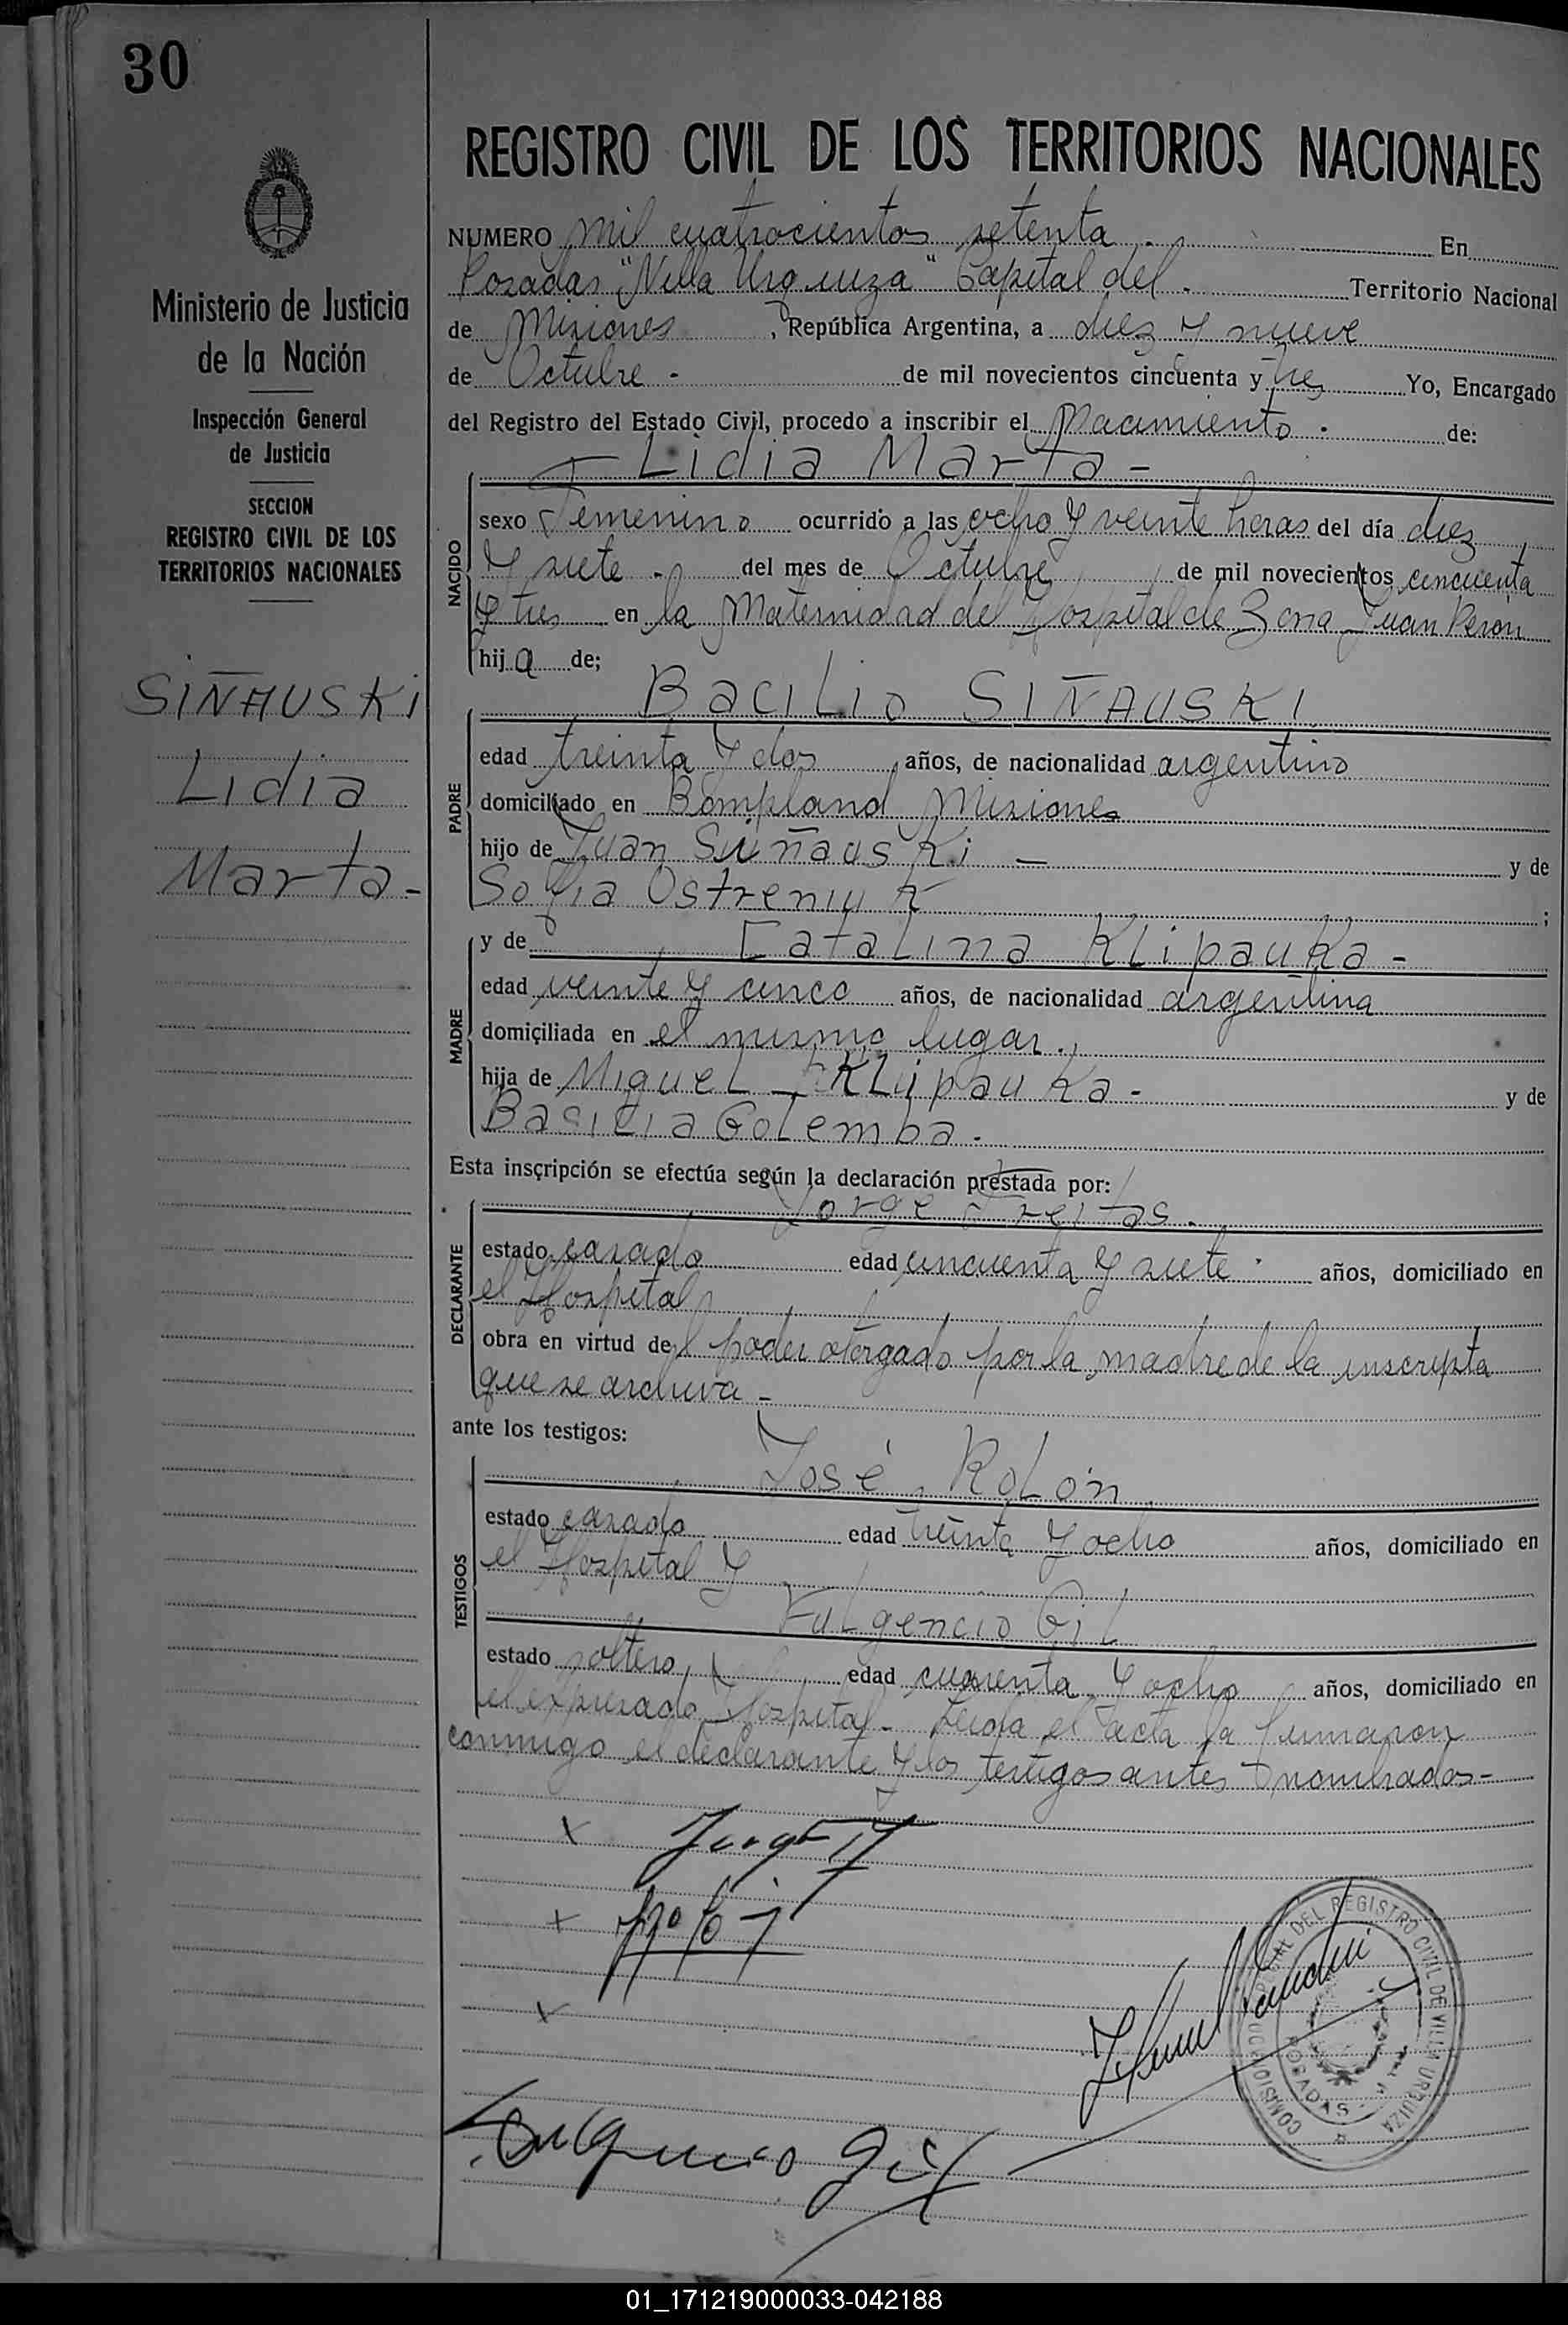 30
Ministerio de Justicia
de la Nación
Inspección General
de Justicia
SECCION
REGISTRO CIVIL DE LOS
TERRITORIOS NACIONALES
SIÑAUSKI
Lidia
Marta-
REGISTRO CIVIL DE LOS TERRITORIOS NACIONALES
NUMERO mil cuatrocientos setenta. En
Posadas "Villa Urquiza" Capital del. Territorio Nacional
de Misiones, República Argentina, a diez y nueve
de Octubre - de mil novecientos cincuenta y tres Yo, Encargado
del Registro del Estado Civil, procedo a inscribir el Nacimiento. de:
NACIDO
Lidia Marta -
sexo Femenino ocurrido a las ocho y veinte horas del día diez
y siete - del mes de Octubre de mil novecientos cincuenta
y tres en la Maternidad del Hospital de Zona Juan Perón
hij a de;
PADRE
BaciLio SIÑAUSKI
edad treinta y dos años, de nacionalidad argentino
domiciliado en Bompland Misiones
hijo de Juan Siñauski - y de
Sofia Ostreniuk ;
MADRE
y de Catalina Klipauka -
edad veinte y cinco años, de nacionalidad argentina
domiciliada en el mismo lugar.
hija de Miguel Klipauka - y de
Basilia Golemba.
Esta inscripción se efectúa según la declaración prestada por:
DECLARANTE
Jorge Freitas.
estado casado edad cincuenta y siete. años, domiciliado en
el Hospital
obra en virtud del poder otorgado por la madre de la inscripta
que se archiva -
ante los testigos:
TESTIGOS
José Rolón
estado casado edad treinta y ocho años, domiciliado en
el Hospital y
Fulgencio Gil
estado soltero, edad cuarenta y ocho años, domiciliado en
el expresado Hospital - Leída el acta la firmaron
conmigo el declarante y los testigos antes nombrados -
x
x
x
Fulgencio Gil
DEL REGISTRO CIVIL DE VILLA URQUIZA
POSADAS
01_171219000033-042188